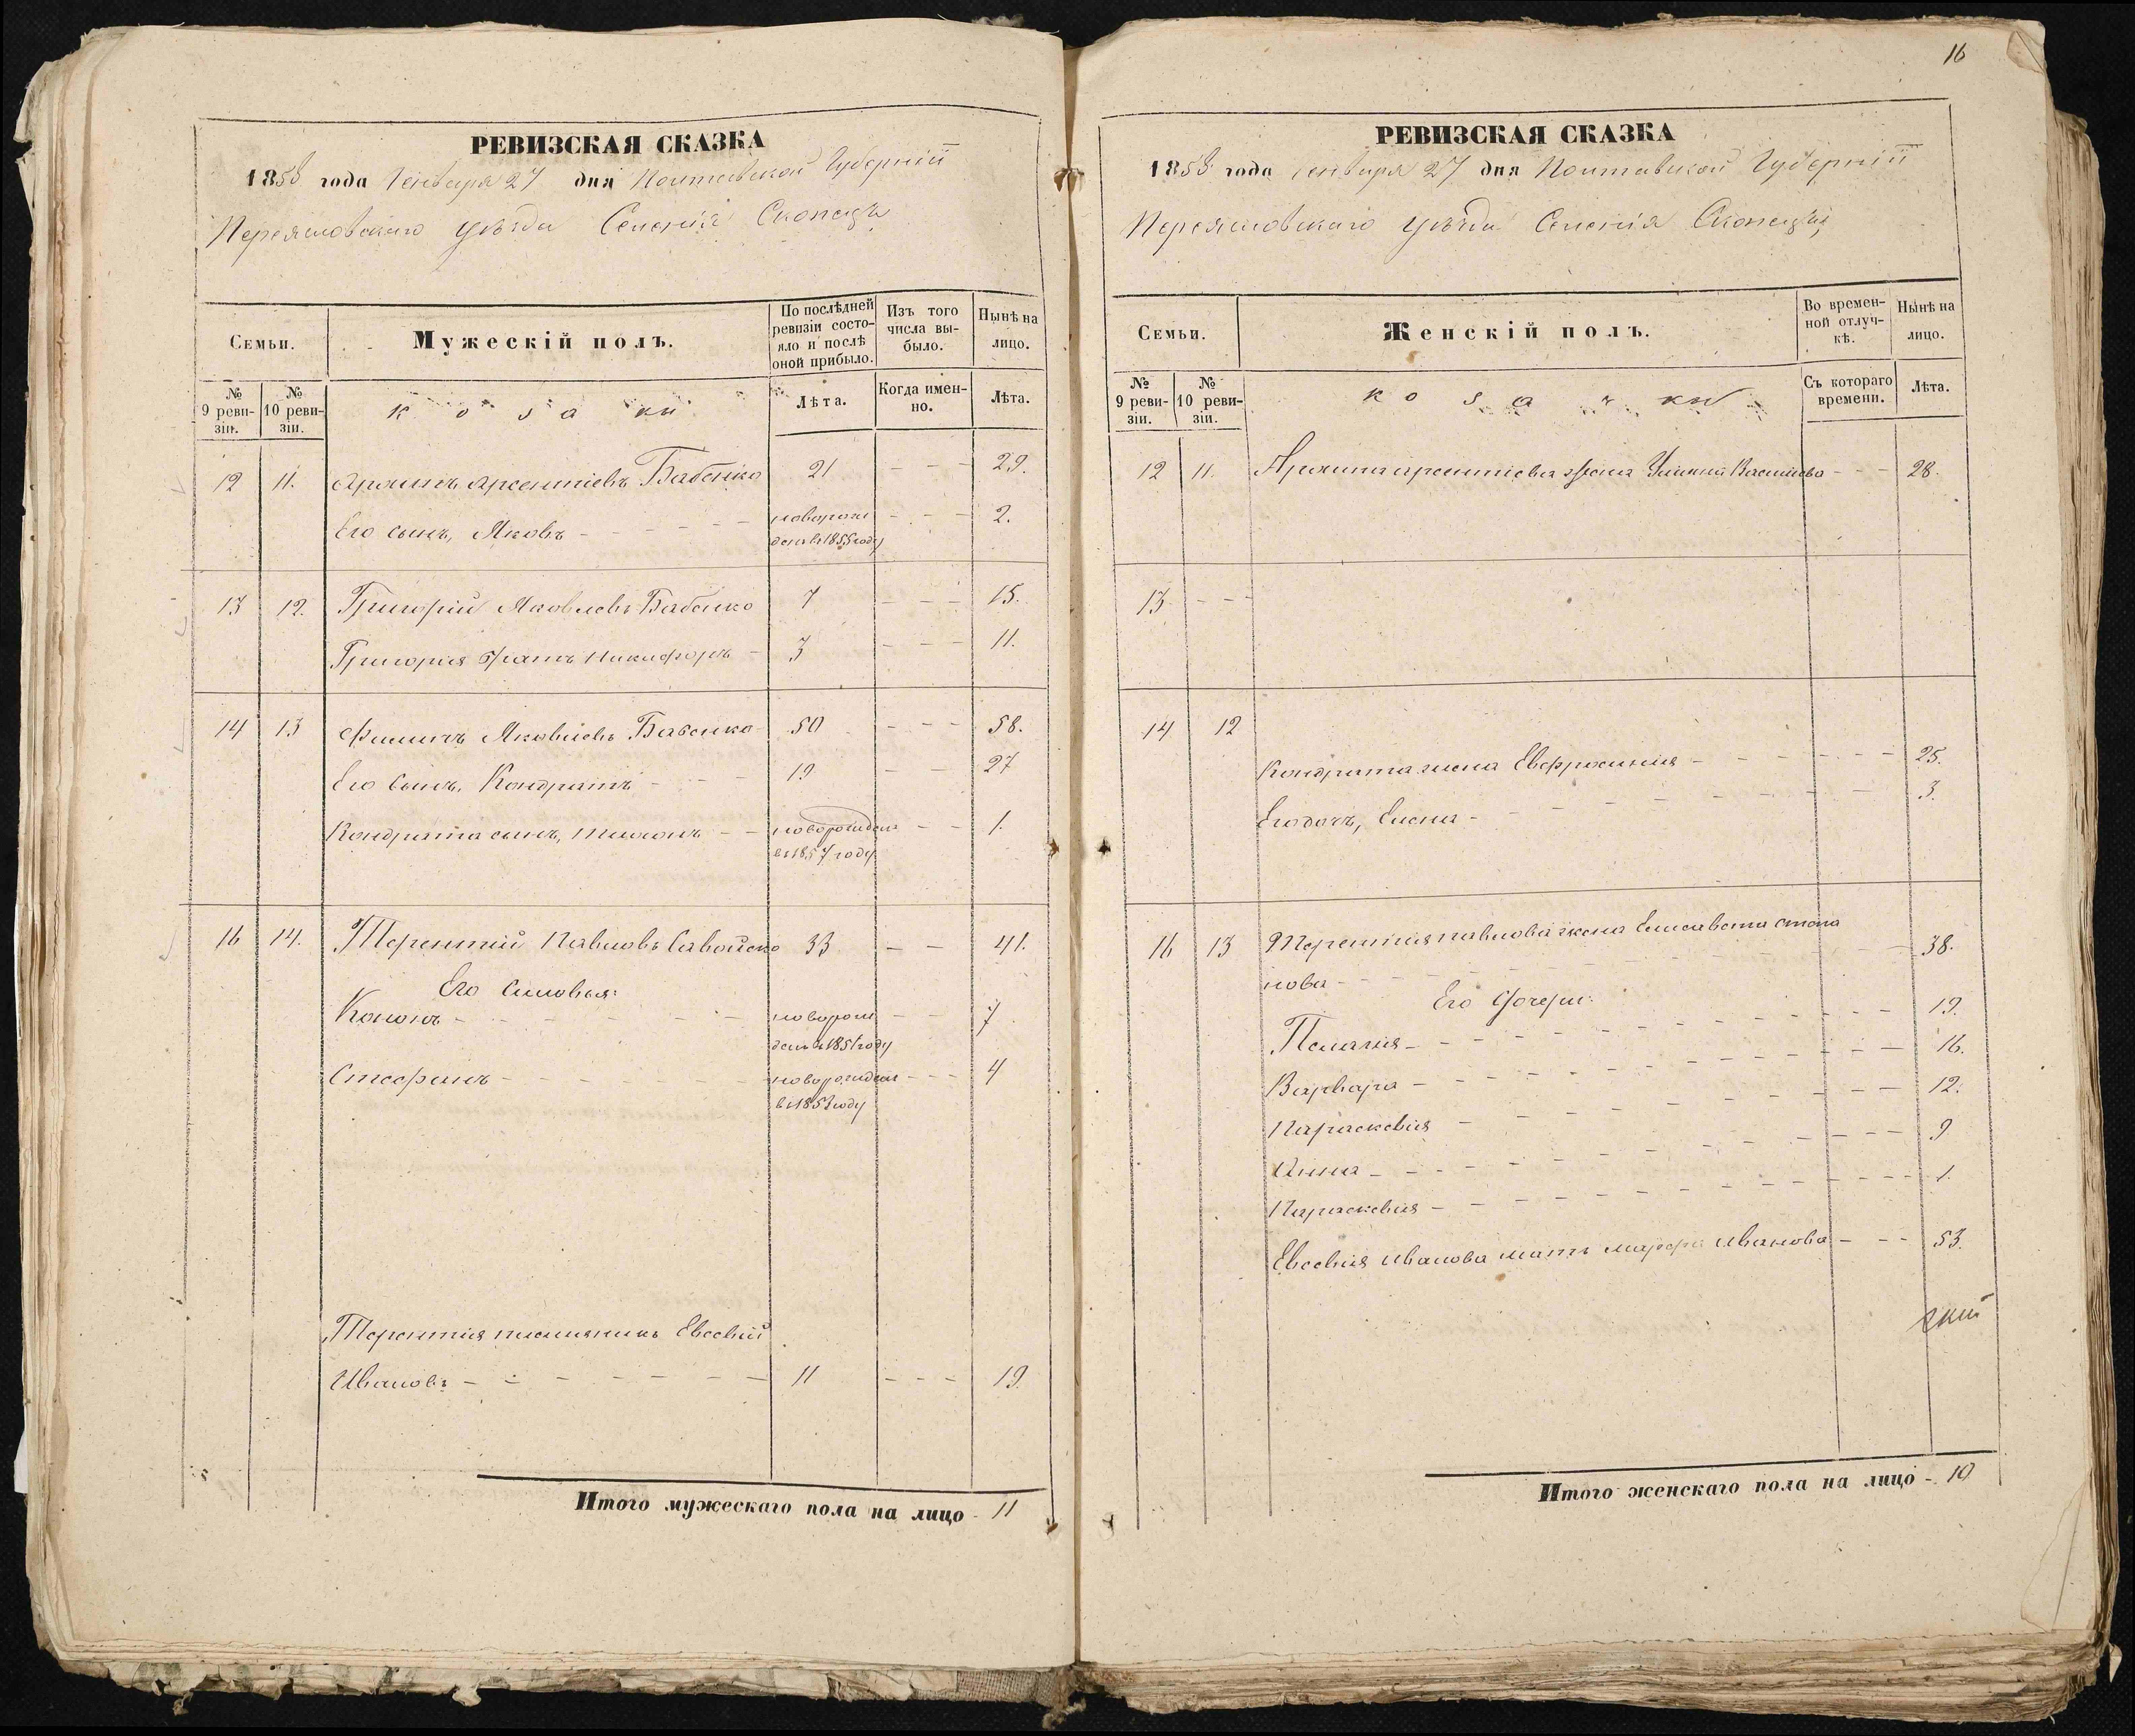 РЕВИЗСКАЯ СКАЗКА
1858 года Генваря 27 дня Полтавской Губернии
Переяславскаго уѣзда Селенія Скопецъ
Семьи.
Мужескій полъ.
По послѣдней ревизіи состояло и послѣ оной прибыло.
Изъ того числа выбыло.
Нынѣ на лицо.
№ 9 ревизіи.
№ 10 ревизіи.
козаки
Лѣта.
Когда именно.
Лѣта.
12 11. Арсентіевъ Бабенко 21 - - - 29.
Его сынъ, Яковъ - - - - новорож - - - 2.
денъ въ 1855 году
13 12. Григорій Яковлевъ Бабенко 7 - - - 15.
Григорія братъ Никифоръ - 3 - - - 11.
14 13 Филипъ Яковлевъ Бабенко 50 - - - 58.
Его сынъ, Кондратъ - - - 19 - - 27
Кондрата сынъ, - - новорожденъ - - 1.
въ 1857 году
16 14. Терентій Павловъ 33 - - 41.
Его сыновья:
Кононъ - - - - - - новорож - - 7
денъ въ 1851 году
Стефанъ - - - - - - новорожден - - - 4
въ 1853 году
Терентія племяникъ Евсевій
Ивановъ - - - - - - - 11 - - - 19.
Итого мужескаго пола на лицо - 11
16
РЕВИЗСКАЯ СКАЗКА
1858 года Генваря 27 дня Полтавской Губернии
Переяславскаго уѣзда Селенія Скопецъ
Семьи.
Женскій полъ.
Во временной отлучкѣ.
Нынѣ на лицо.
№ 9 ревизіи.
№ 10 ревизіи.
козачки
Съ котораго времени.
Лѣта.
12 11. Арсентіева жена Васильева - - - 28.
13 - - -
14 12
Кондрата жена Евфросинія - - - - - - 25.
Его дочь, Елена - - - - - - - - 3.
16 13 Терентія Павлова жена Елисавета Степа
нова - - - - - - - - 38.
Его дочери:
Пелагія - - - - - - - - 19.
Варвара - - - - - - - - 16.
Параскевія - - - - - - - 12.
Анна - - - - - - - - 9
Параскевія - - - - - - - - 1.
Евсевія Иванова мать Марфа Иванова - - - 53.
Итого женскаго пола на лицо - 10